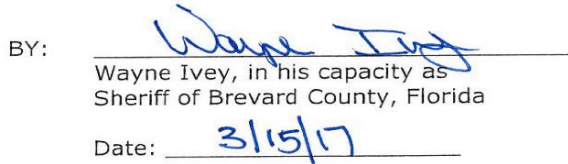 BY: Wayne Ivey
Wayne Ivey, in his capacity as
Sheriff of Brevard County, Florida
Date: 3/15/17